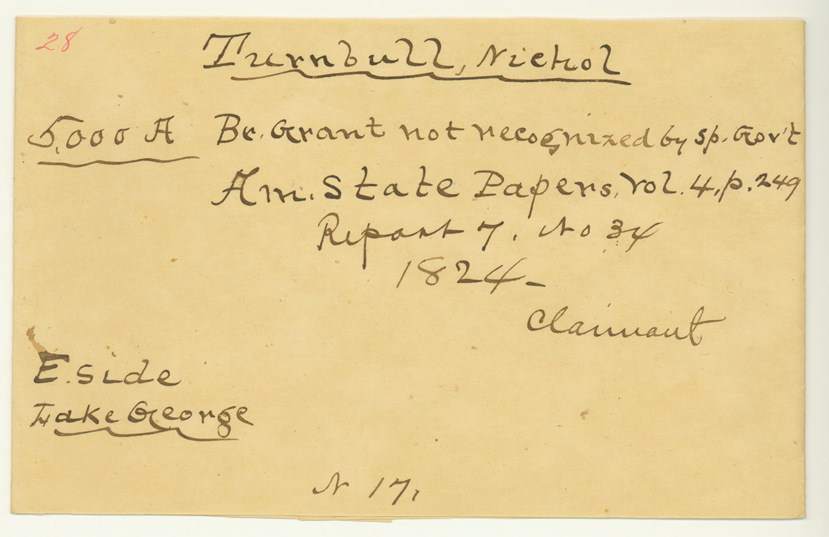 28
Turnbull, Nichol
5,000 A Br. Grant not recognized by Sp. Gov't
Am. State Papers, Vol. 4, p. 249
Report 7. No 34
1824-
Claimant
E. Side
Lake George
N 17,